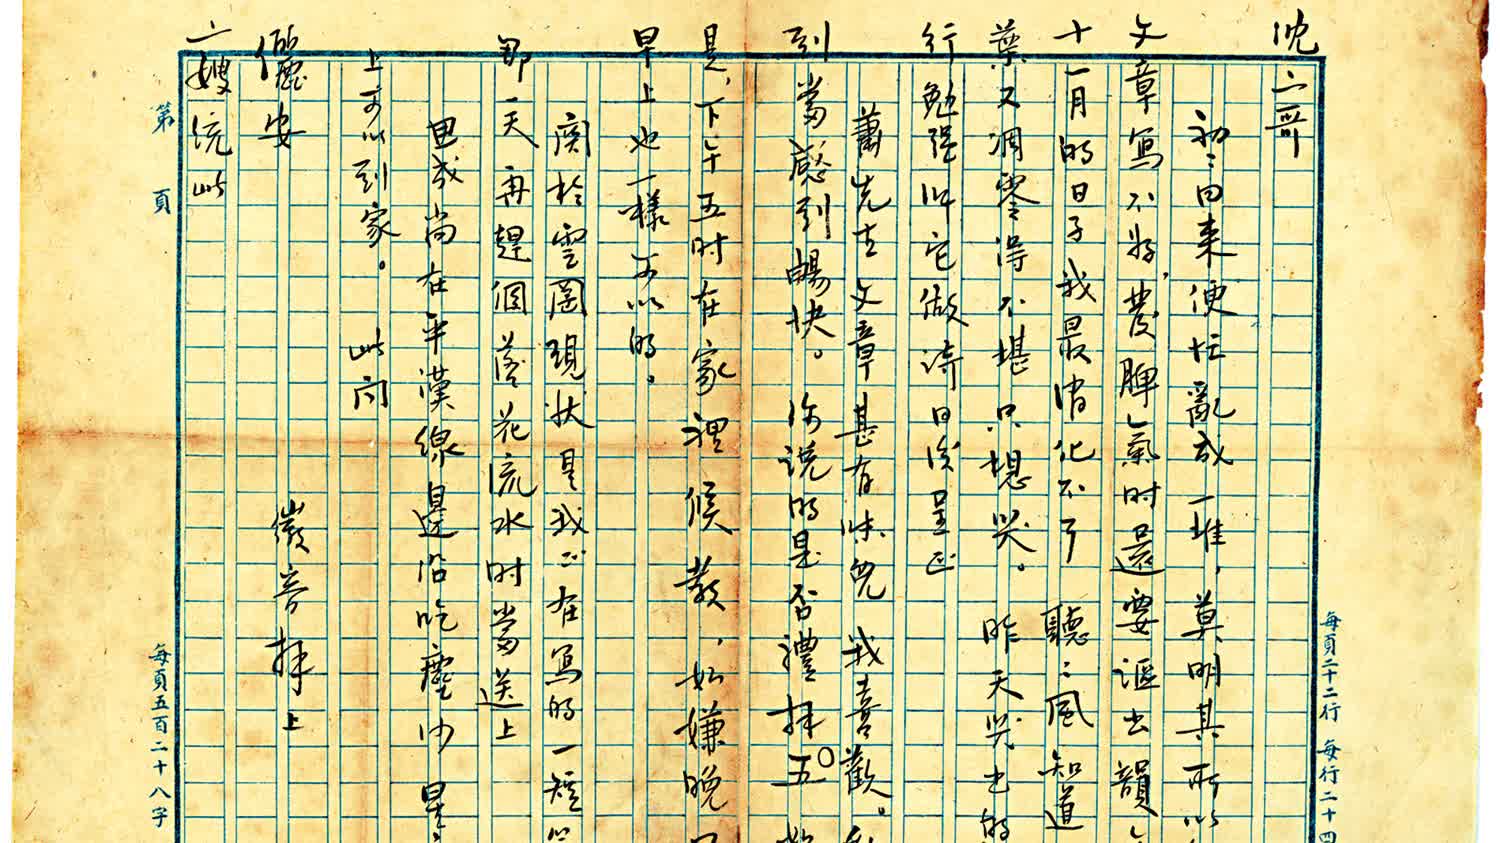 沈二哥
初二回來便忙亂成一堆，莫明其所以
文章寫不好，發脾氣时還要謳出韻
十一月的日子我最消化不了 聽〻風知道
葉又凋零得不堪只想哭。昨天哭出的
行勉强叫它做詩日後呈正
蕭先生文章甚有味兒 我喜歡。
到當感到暢快。你説的是否禮拜五。
是，下午五时在家裡候教，如嫌晚
早上也一樣可以的。
関於雲岡現状是我正在写的一短
那一天再趕個落花流水时當送上
思成尚在平漢線邊沿吃塵沙 星
上可以到家。此问
儷安
徽音拜上
二嫂统此
第 頁
每頁二十二行 每行二十四
每頁五百二十八字